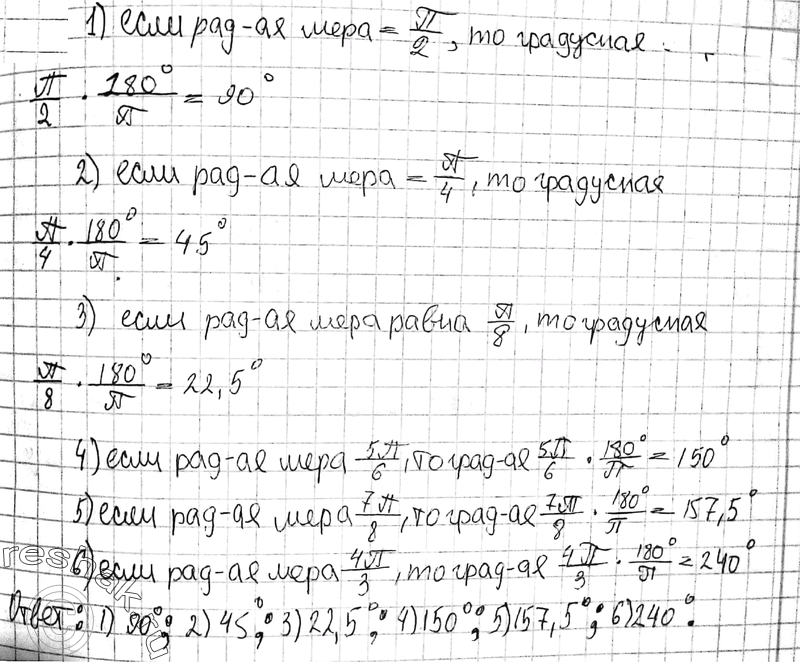 1) если рад-ая мера = π/2, то градусная
π/2 · 180°/π = 90°
2) если рад-ая мера = π/4, то градусная
π/4 · 180°/π = 45°
3) если рад-ая мера равна π/8, то градусная
π/8 · 180°/π = 22,5°
4) если рад-ая мера 5π/6, то град-ая 5π/6 · 180°/π = 150°
5) если рад-ая мера 7π/8, то град-ая 7π/8 · 180°/π = 157,5°
6) если рад-ая мера 4π/3, то град-ая 4π/3 · 180°/π = 240°
Ответ: 1) 90°; 2) 45°; 3) 22,5°; 4) 150°; 5) 157,5°; 6) 240°.